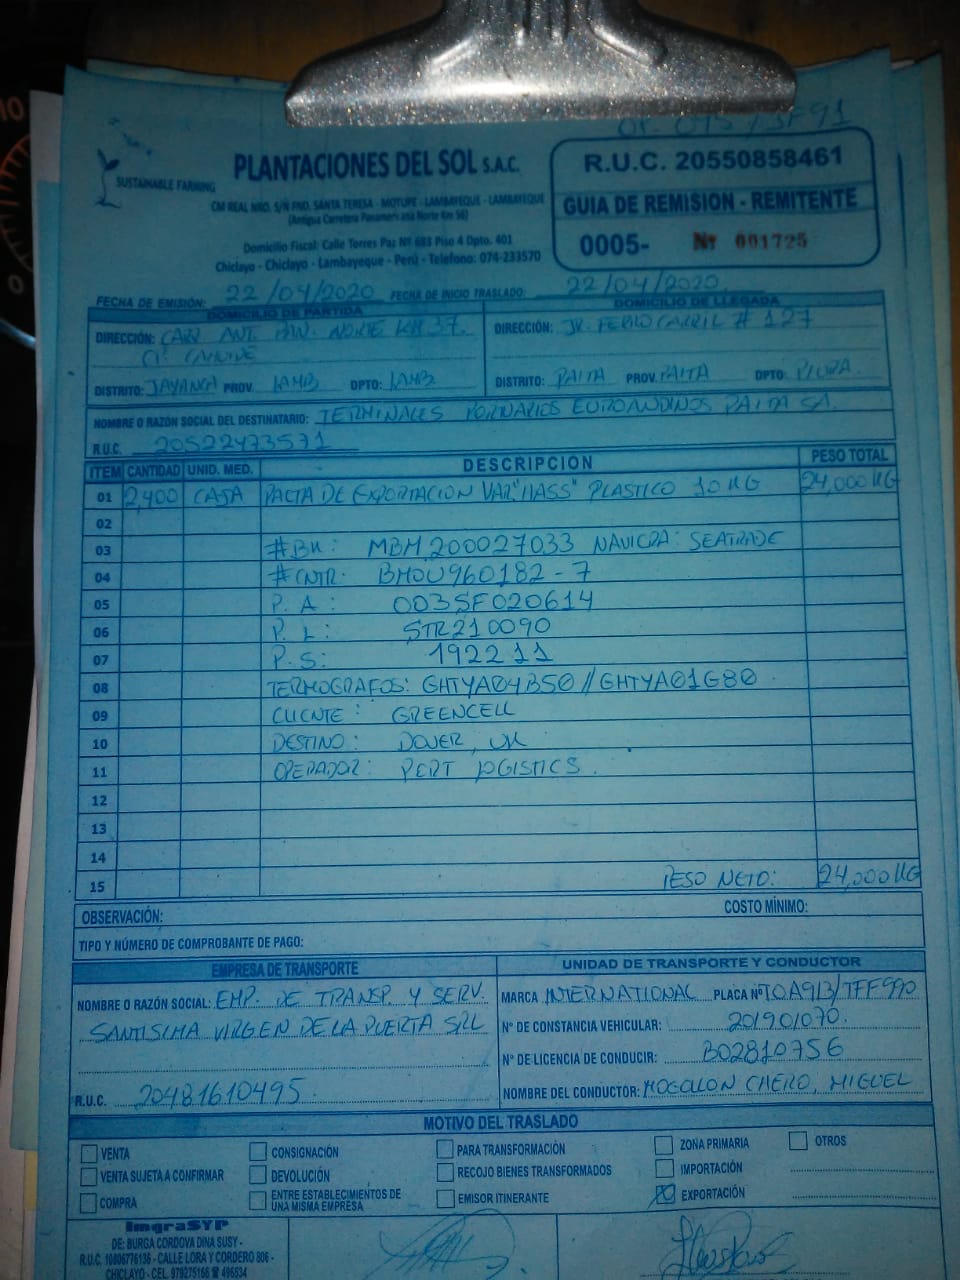 PLANTACIONES DEL SOL S.A.C.
SUSTAINABLE FARMING
CM REAL NRO. S/N FND. SANTA TERESA - MOTUPE - LAMBAYEQUE - LAMBAYEQUE
(Antigua Carretera Panamericana Norte Km 56)
Domicilio Fiscal: Calle Torres Paz Nº 683 Piso 4 Dpto. 401
Chiclayo - Chiclayo - Lambayeque - Perú - Telefono: 074-233570
R.U.C. 20550858461
GUIA DE REMISION - REMITENTE
0005- Nº 001725
FECHA DE EMISIÓN: 22/04/2020 FECHA DE INICIO TRASLADO: 22/04/2020
DOMICILIO DE PARTIDA
DIRECCIÓN: CARR ANT. PAN. NORTE KM 37.
DISTRITO: JAYANCA PROV. LAMB DPTO: LAMB.
DOMICILIO DE LLEGADA
DIRECCIÓN: JR. FERROCARRIL # 127
DISTRITO: PAITA PROV. PAITA DPTO: PIURA.
NOMBRE O RAZÓN SOCIAL DEL DESTINATARIO: TERMINALES PORTUARIOS EUROANDINOS PAITA SA.
R.U.C. 20522473571
ITEM CANTIDAD UNID. MED. DESCRIPCION PESO TOTAL
01 2,400 CAJA PALTA DE EXPORTACION VAR "HASS" PLASTICO 10 KG 24,000 KG
02
03 #BK: MBM200027033 NAVIERA: SEATRADE
04 #CNTR. BMOU960182-7
05 P. A: 003SF020614
06 P. L: STR210090
07 P. S: 192211
08 TERMOGRAFOS: GHTYA04B50 // GHTYA01G80
09 CLIENTE: GREENCELL
10 DESTINO: DOVER, UK
11 OPERADOR: PERT LOGISTICS.
12
13
14
15 PESO NETO: 24,000 KG
OBSERVACIÓN: COSTO MÍNIMO:
TIPO Y NÚMERO DE COMPROBANTE DE PAGO:
EMPRESA DE TRANSPORTE
NOMBRE O RAZÓN SOCIAL: EMP. DE TRANSP. Y SERV.
SANTISIMA VIRGEN DE LA PUERTA SRL
R.U.C. 20481610495
UNIDAD DE TRANSPORTE Y CONDUCTOR
MARCA INTERNATIONAL PLACA Nº T0A913/TFF990
Nº DE CONSTANCIA VEHICULAR: 201901070.
Nº DE LICENCIA DE CONDUCIR: B02810756
NOMBRE DEL CONDUCTOR: MOGOLLON CHERO, MIGUEL
MOTIVO DEL TRASLADO
VENTA CONSIGNACIÓN PARA TRANSFORMACIÓN ZONA PRIMARIA OTROS
VENTA SUJETA A CONFIRMAR DEVOLUCIÓN RECOJO BIENES TRANSFORMADOS IMPORTACIÓN
COMPRA ENTRE ESTABLECIMIENTOS DE UNA MISMA EMPRESA EMISOR ITINERANTE EXPORTACIÓN
ImgraSYP
DE: BURGA CORDOVA DINA SUSY -
R.U.C. 10806776136 - CALLE LORA Y CORDERO 806 -
CHICLAYO - CEL. 979275166 ☎ 496534